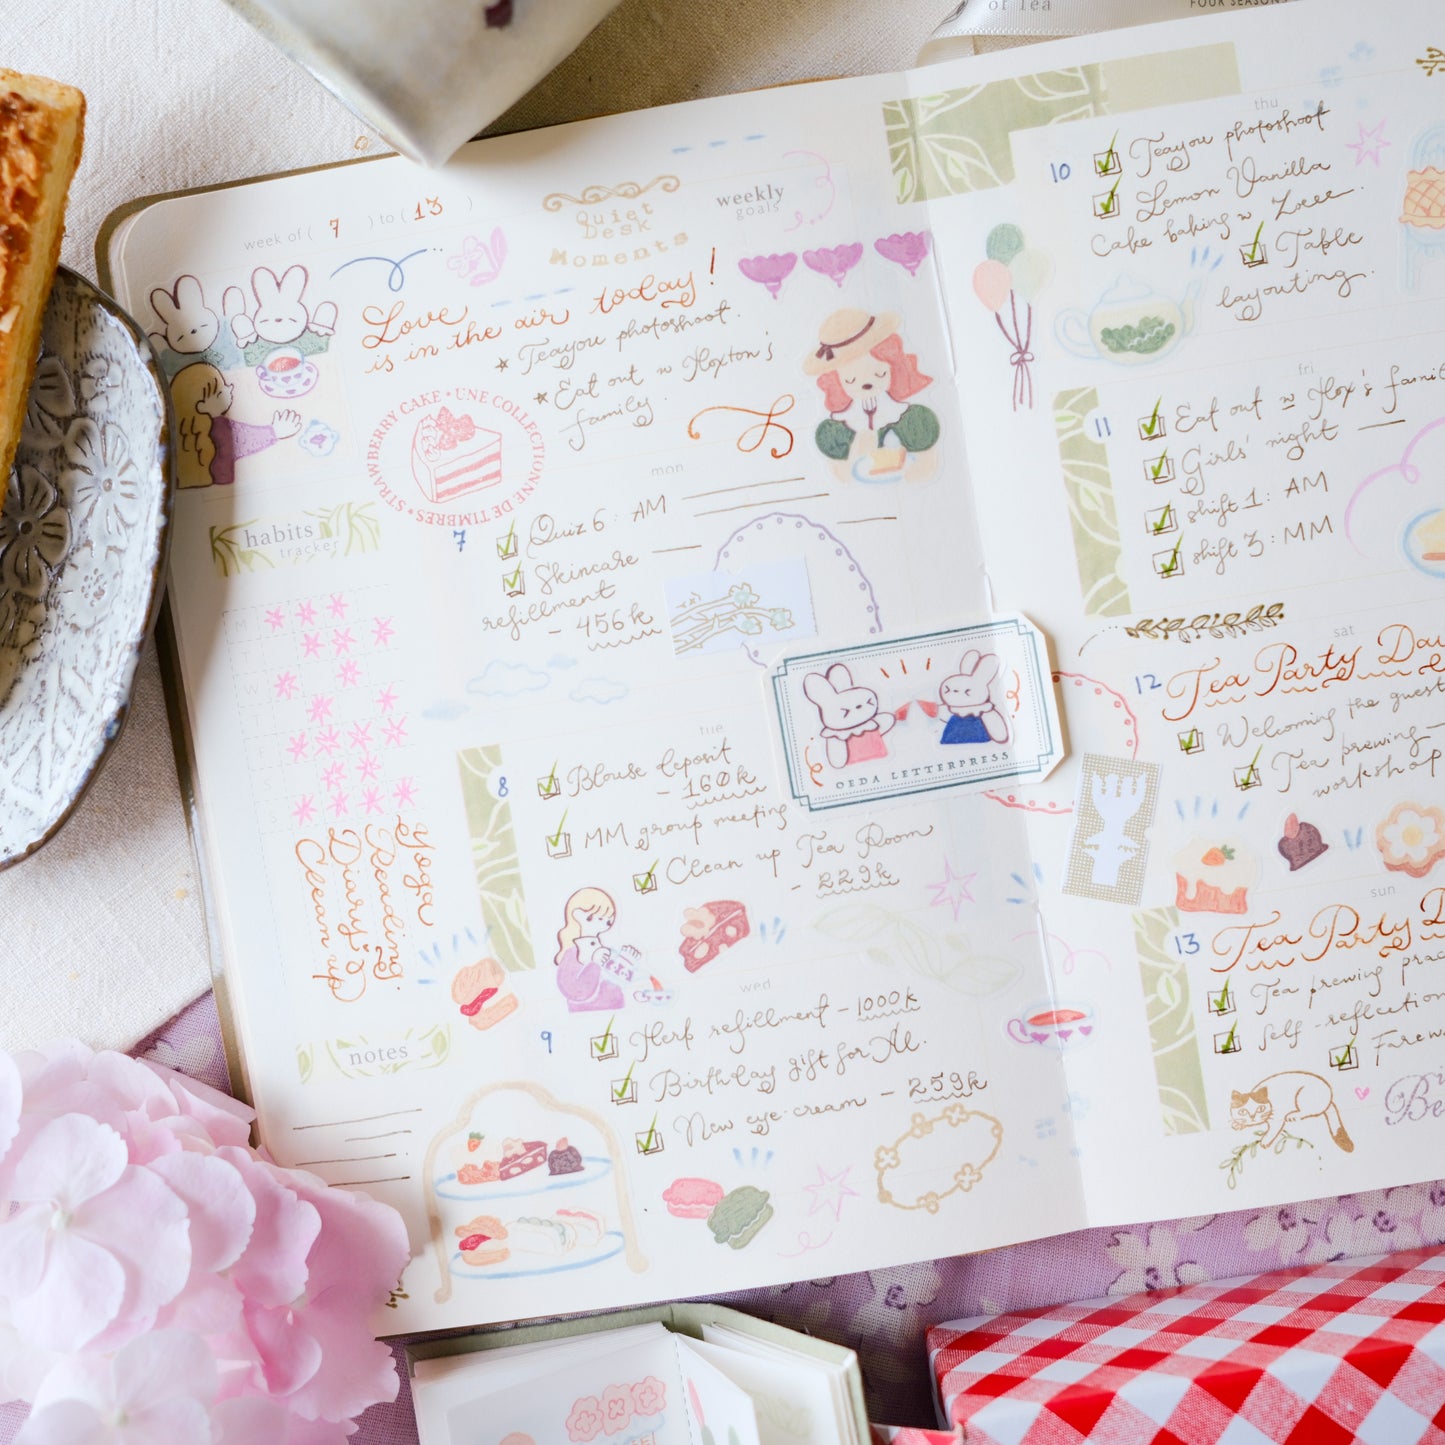 week of ( 7 ) to ( 13 )
Quiet
Desk
Moments
weekly
goals
Love
is in the air today!
★ Teayou photoshoot.
★ Eat out w Hoxton's
family.
STRAWBERRY CAKE • UNE COLLECTION DE TIMBRES •
habits
tracker
M
T
W
T
F
S
S
Yoga
Reading.
Diary &
Clean up
notes
mon
7
Quiz 6: AM
Skincare
refillment
- 456k
tue
8
Blouse deposit
- 160k
MM group meeting
Clean up Tea Room
- 229k
wed
9
Herb refillment - 1000k
Birthday gift for Al.
New eye cream - 259k
OEDA LETTERPRESS
of Tea
FOUR SEASONS
thu
10
Teayou photoshoot
Lemon Vanilla
Cake baking w Zoee.
Table
layouting.
fri
11
Eat out w Hox's
Girls' night
shift 1: AM
shift 3: MM
sat
12
Tea Party
Welcoming the
Tea prewing -
workshop
sun
13
Tea Party
Tea prewing
Self-reflection